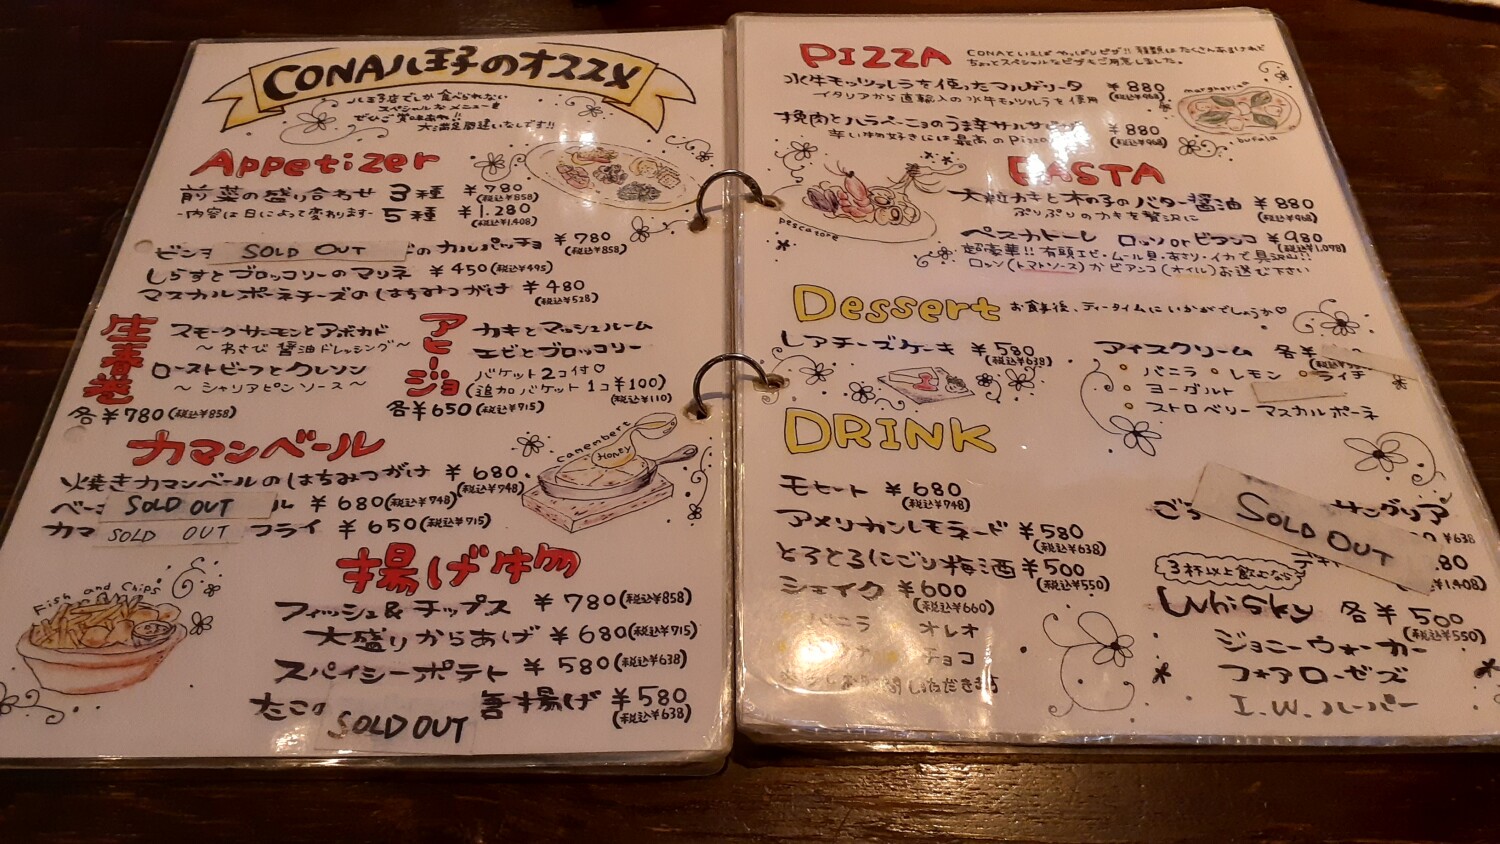 CONA八王子のオススメ
八王子店でしか食べられない
スペシャルなメニューを
ぜひご賞味あれ!!
大満足間違いなしです!!
Appetizer
前菜の盛り合わせ 3種 ¥780 (税込¥858)
-内容は日によって変わります- 5種 ¥1.280 (税込¥1,408)
ビンチョ SOLD OUT のカルパッチョ ¥780 (税込¥858)
しらすとブロッコリーのマリネ ¥450 (税込¥495)
マスカルポーネチーズのはちみつがけ ¥480 (税込¥528)
生春巻
スモークサーモンとアボカド
〜わさび醤油ドレッシング〜
ローストビーフとクレソン
〜シャリアピンソース〜
各¥780 (税込¥858)
アヒージョ
カキとマッシュルーム
エビとブロッコリー
バケット2コ付♡
(追加バケット1コ¥100)
(税込¥110)
各¥650 (税込¥715)
カマンベール
焼きカマンベールのはちみつがけ ¥680 (税込¥748)
ベーコ SOLD OUT ル ¥680 (税込¥748)
カマ SOLD OUT フライ ¥650 (税込¥715)
camembert
Honey
揚げ物
Fish and Chips
フィッシュ&チップス ¥780 (税込¥858)
大盛りからあげ ¥680 (税込¥715)
スパイシーポテト ¥580 (税込¥638)
たこの SOLD OUT 揚げ ¥580 (税込¥638)
PIZZA
CONAといえばやっぱりピザ!! 種類はたくさんあるけれど
ちょっとスペシャルなピザもご用意しました。
水牛モッツァレラを使ったマルゲリータ ¥880
イタリアから直輸入の水牛モッツァレラを使用
挽肉とハラペーニョのうま辛サルサ ¥880
辛い物好きには最高のPizza
margherita
bufala
PASTA
大粒カキと木の子のバター醤油 ¥880 (税込¥968)
ぷりぷりのカキを贅沢に
ペスカトーレ ロッソorビアンコ ¥980 (税込¥1,078)
超豪華!! 有頭エビ・ムール貝・あさり・イカで具沢山!!
ロッソ(トマトソース)かビアンコ(オイル)お選び下さい
pescatore
Dessert お食事後、ティータイムにいかがでしょうか♡
レアチーズケーキ ¥580 (税込¥638)
アイスクリーム 各¥
バニラ レモン ライチ
ヨーグルト
ストロベリーマスカルポーネ
DRINK
モヒート ¥680
(税込¥748)
アメリカンレモネード ¥580
(税込¥638)
とろとろにごり梅酒 ¥500
(税込¥550)
シェイク ¥600
(税込¥660)
バニラ オレオ
チョコ
SOLD OUT サングリア
3杯以上飲むなら
Whisky 各¥500
(税込¥550)
ジョニーウォーカー
フォアローゼズ
I.W.ハーパー